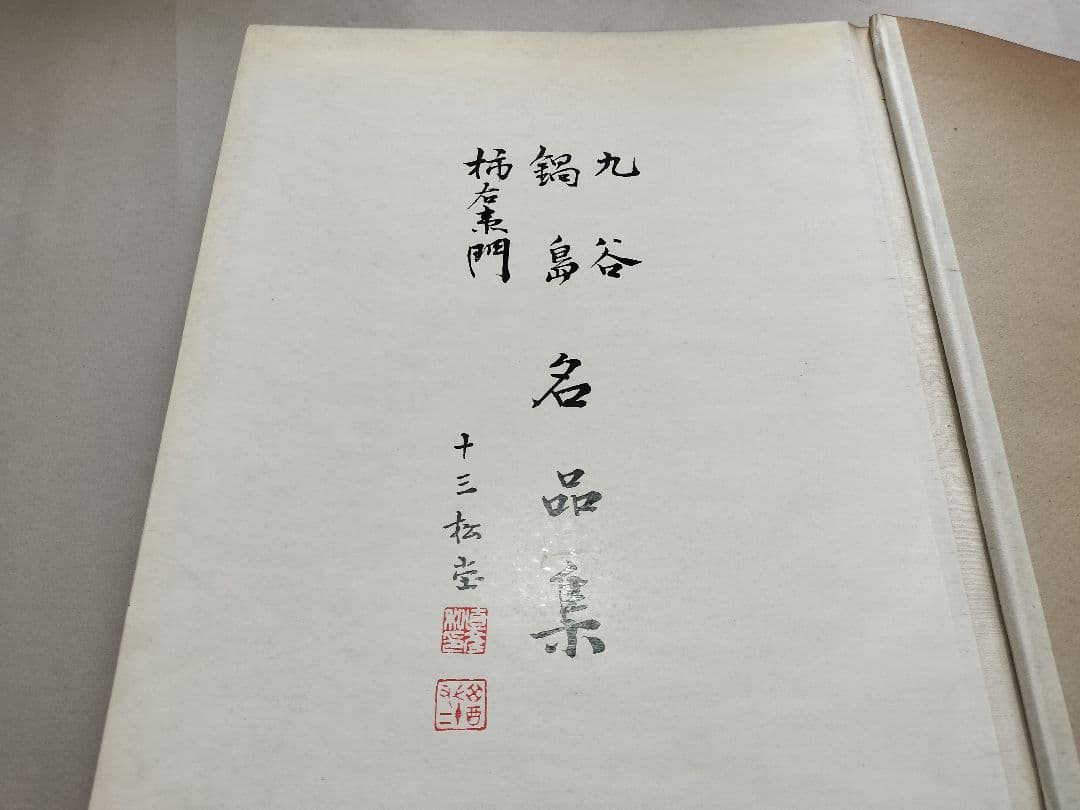 九谷
鍋島
柿右衛門
名品集
十三松堂